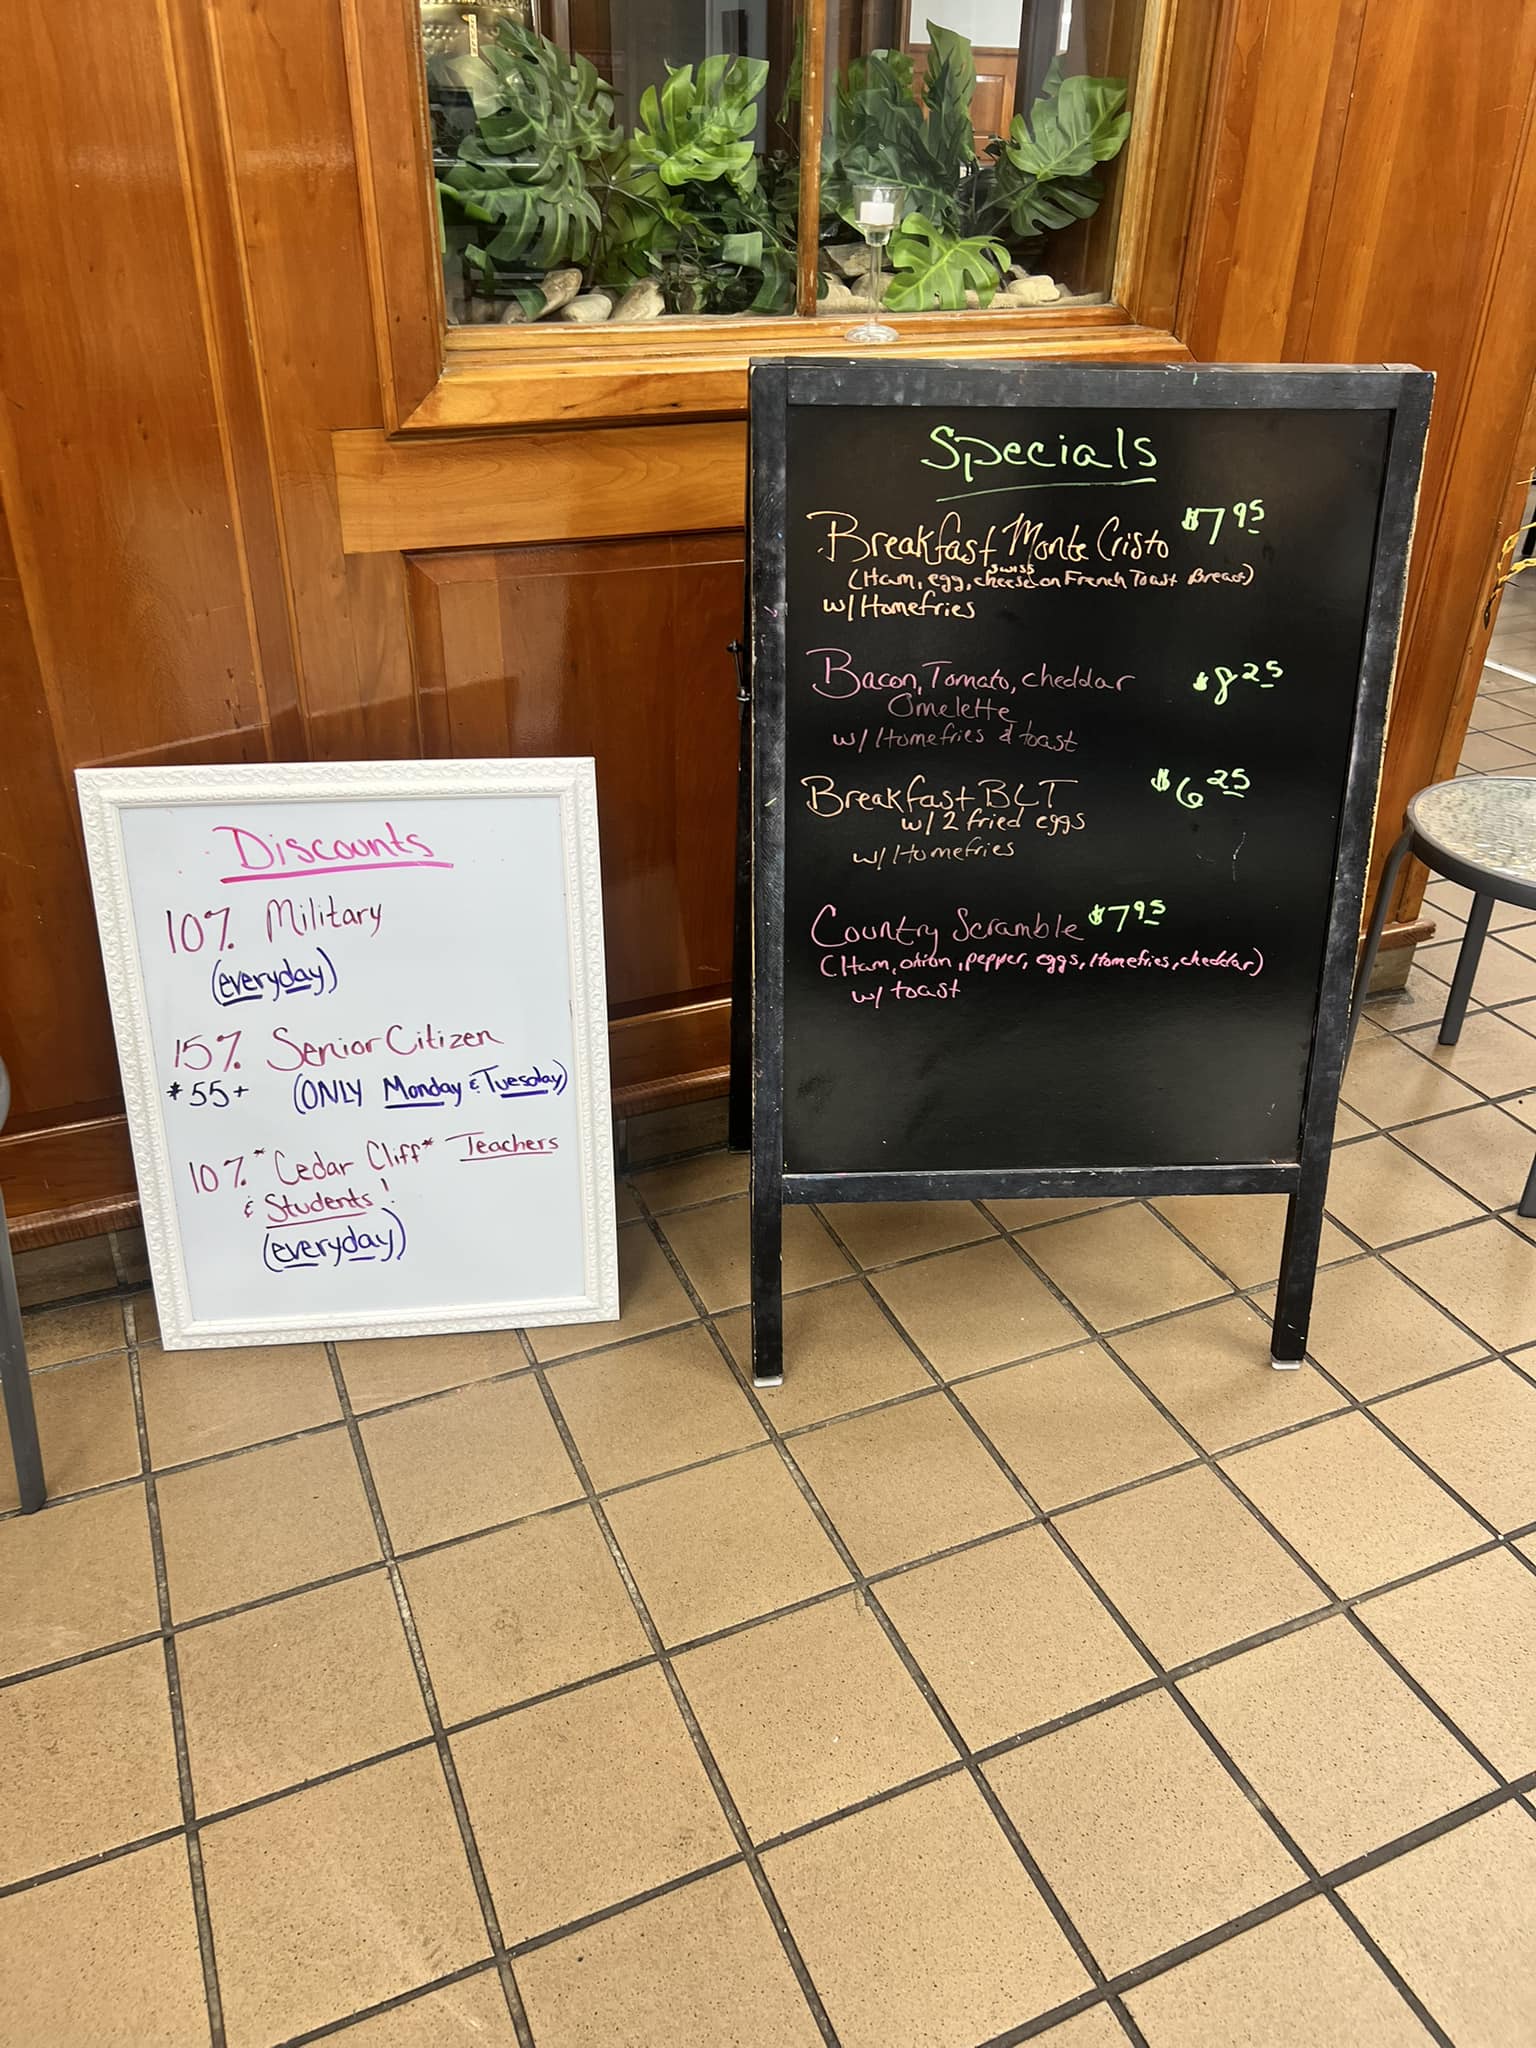 Discounts
10% Military
(everyday)
15% Senior Citizen
*55+ (ONLY Monday & Tuesday)
10% *Cedar Cliff* Teachers
& Students!
(everyday)
Specials
Breakfast Monte Cristo $7.95
(Ham, egg, swiss cheese on French Toast Bread)
w/ Homefries
Bacon, Tomato, cheddar $8.25
Omelette
w/ Homefries & toast
Breakfast BLT $6.25
w/ 2 fried eggs
w/ Homefries
Country Scramble $7.95
(Ham, onion, pepper, eggs, Homefries, cheddar)
w/ toast